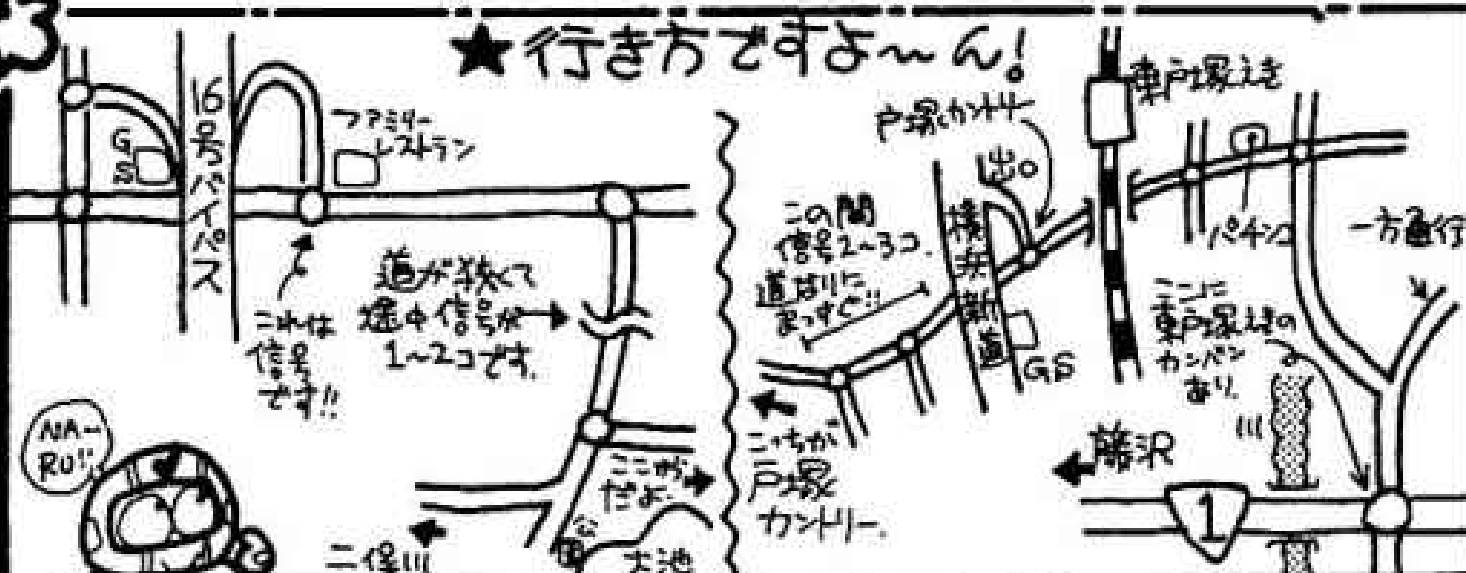 3
★行き方ですよ〜ん!
16号バイパス
GS
ファミリー
レストラン
これは
信号
です!!
道が狭くて
途中信号が
1〜2コです。
NA-
RU!!
ここが
だよ。
大池
二俣川
東戸塚えき
戸塚カントリー
出口
この間
信号2〜3コ.
道なりに
まっすぐ!!
横浜新道
GS
パチンコ
一方通行
ここに
東戸塚えきの
カンバン
あり.
こっちが
戸塚
カントリー.
藤沢
川
1